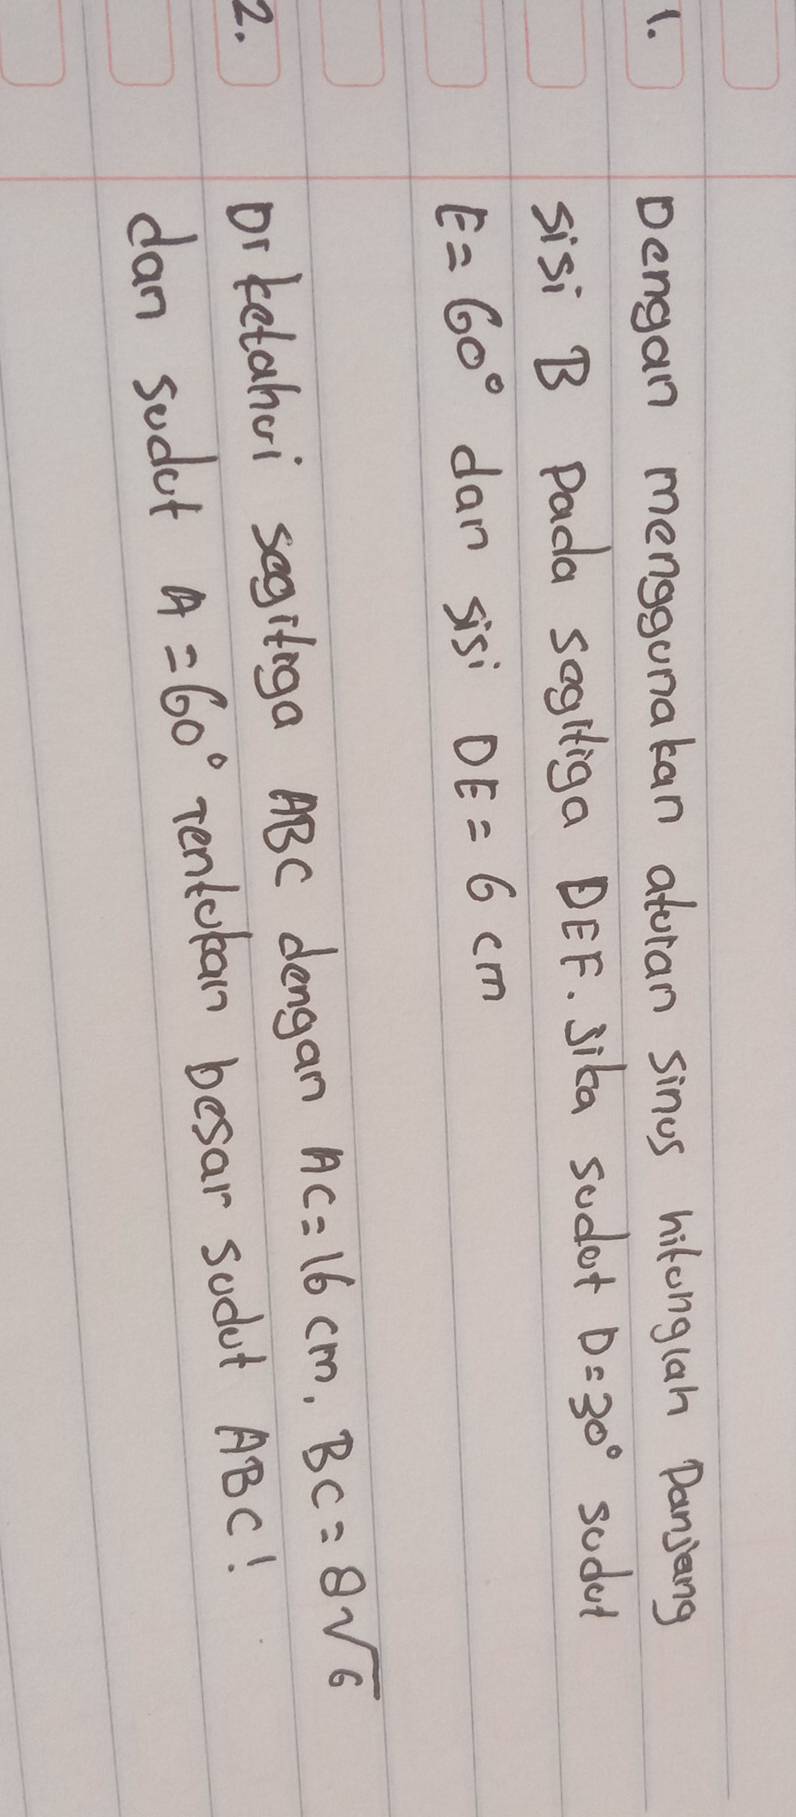 1. Dengan menggunakan aturan sinus hitunglah Panjang
sisi B Pada segitiga DEF. Jika sudut D=30° sudut
E=60° dan sisi DE=6 cm
2. Diketahui segitiga ABC dengan AC=16 cm, BC=8√6
dan sudut A=60° Tentukan besar sudut ABC!